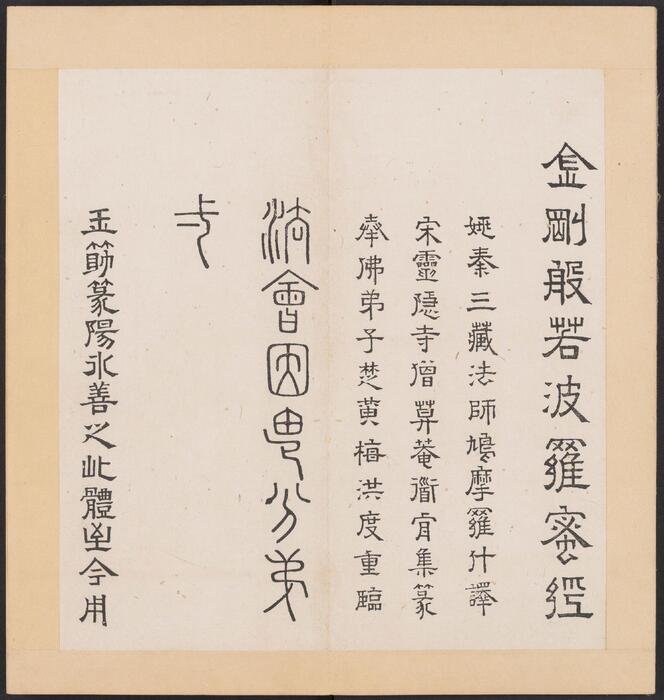 金剛般若波羅蜜經
姚秦三藏法師鳩摩羅什譯
宋靈隱寺僧莫菴道肯集篆
奉佛弟子楚黄梅洪度重臨
法會因由分弟
弌
玉筯篆陽冰善之此體至今用